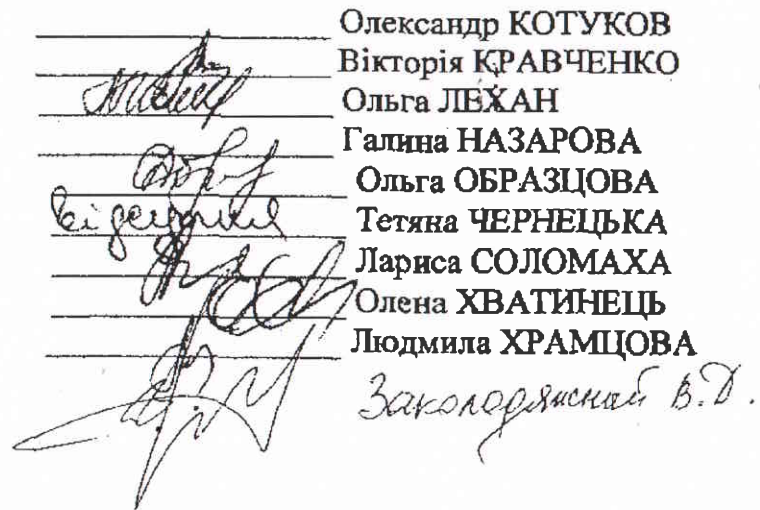 Олександр КОТУКОВ
Вікторія КРАВЧЕНКО
Ольга ЛЕХАН
Галина НАЗАРОВА
Ольга ОБРАЗЦОВА
відсутня Тетяна ЧЕРНЕЦЬКА
Лариса СОЛОМАХА
Олена ХВАТИНЕЦЬ
Людмила ХРАМЦОВА
В.Д.